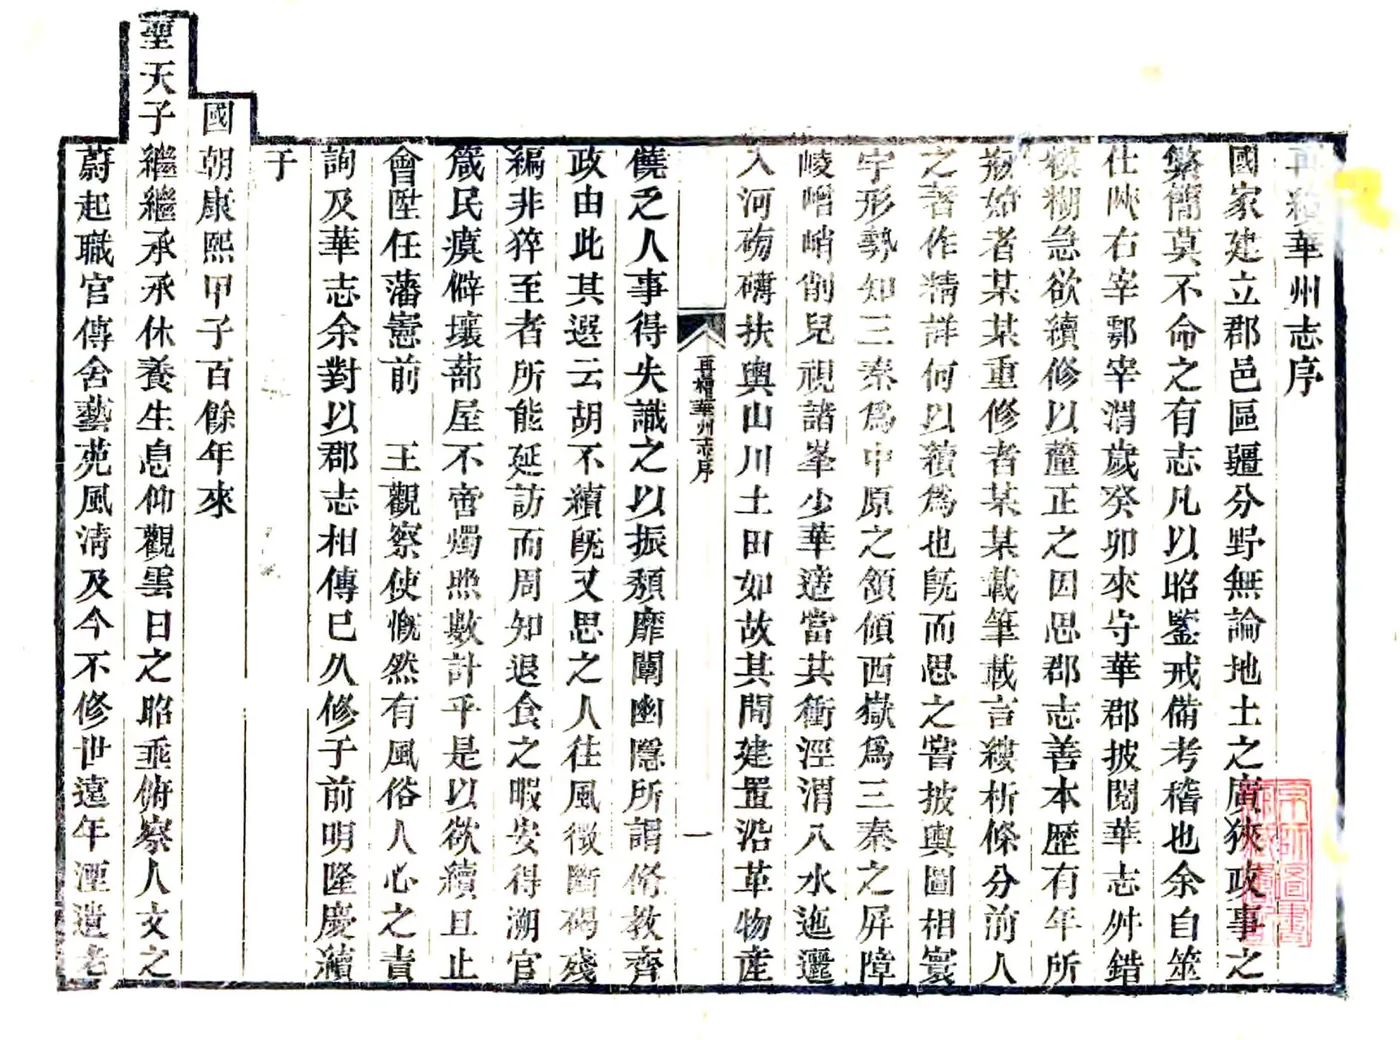 再續華州志序
國家建立郡邑區疆分野無論地土之廣狹政事之
繁簡莫不命之有志凡以昭鑒戒備考稽也余自筮
仕陝右宰鄠宰渭歲癸卯來守華郡披閱華志舛錯
模糊急欲續修以釐正之因思郡志善本歷有年所
剏始者某某重修者某某載筆載言縷析條分前人
之著作精詳何以續為也既而思之嘗披輿圖相寰
宇形勢知三秦為中原之領傾西嶽為三秦之屏障
崚嶒峭削兒視諸峯少華適當其衝涇渭八水迤邐
入河磅礡扶輿山川土田如故其間建置沿革物產
饒乏人事得失識之以振頹靡闡幽隱所謂脩教齊
政由此其選云胡不續既又思之人往風微斷碣殘
編非猝至者所能延訪而周知退食之暇安得溯官
箴民瘼僻壤蔀屋不啻燭照數計乎是以欲續且止
會陞任藩憲前　王觀察使慨然有風俗人心之責
詢及華志余對以郡志相傳已久修于前明隆慶續
于
國朝康熙甲子百餘年來
聖天子繼繼承承休養生息仰觀雲日之昭垂俯察人文之
蔚起職官傳舍藝苑風清及今不修世遠年湮遺老
再續華州志序
一
京師圖書